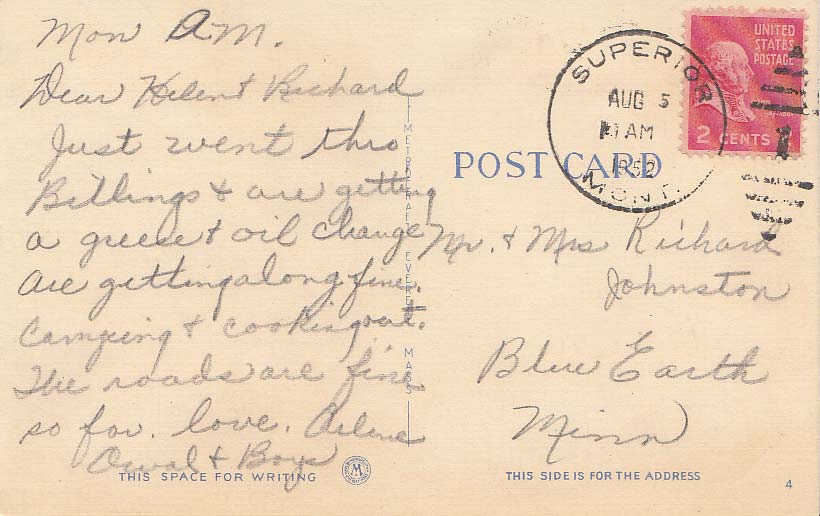 Mon A.M.
Dear Helen & Richard
Just went thro
Billings & are getting
a greese & oil change
are getting along fine.
Camping & cooking out.
The roads are fine
so far. love. Arlene
Orval & Boys
THIS SPACE FOR WRITING
METROCRAFT EVERETT MASS
M
POST CARD
SUPERIOR
AUG 5
AM
1952
MONT.
UNITED
STATES
POSTAGE
2 CENTS
Mr. & Mrs Richard
Johnston
Blue Earth
Minn
THIS SIDE IS FOR THE ADDRESS
4